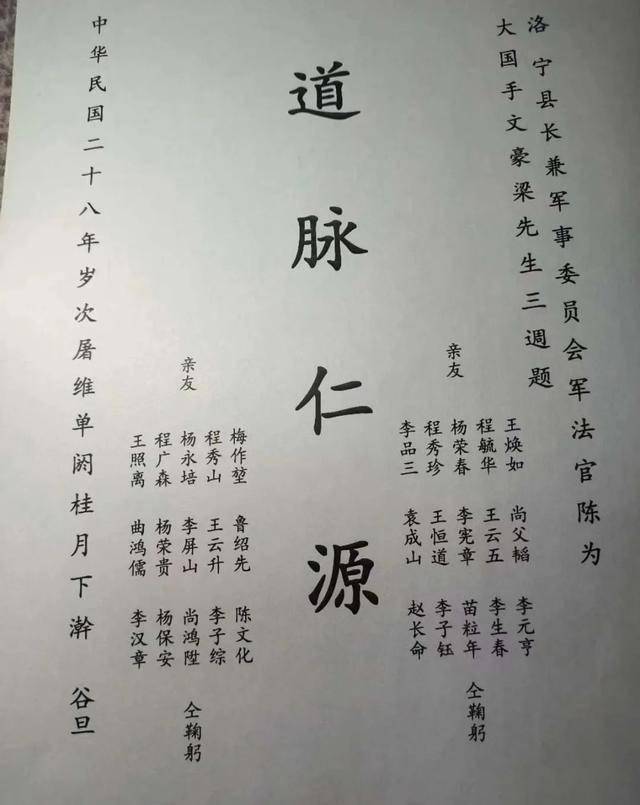 洛宁县长兼军事委员会军法官陈为
大国手文豪梁先生三調题
亲友
王焕如 尚父韬 李元亨
程毓华 王云五 李生春
杨荣春 李宪章 苗粒年
程秀珍 王恒道 李子钰
李品三 袁成山 赵长命
仝鞠躬
道脉仁源
亲友
梅作堃 鲁绍先 陈文化
程秀山 王云升 李子综
杨永培 李屏山 尚鸿陞
程广森 杨荣贵 杨保安
王照离 曲鸿儒 李汉章
仝鞠躬
中华民国二十八年岁次屠维单阏桂月下澣 谷旦